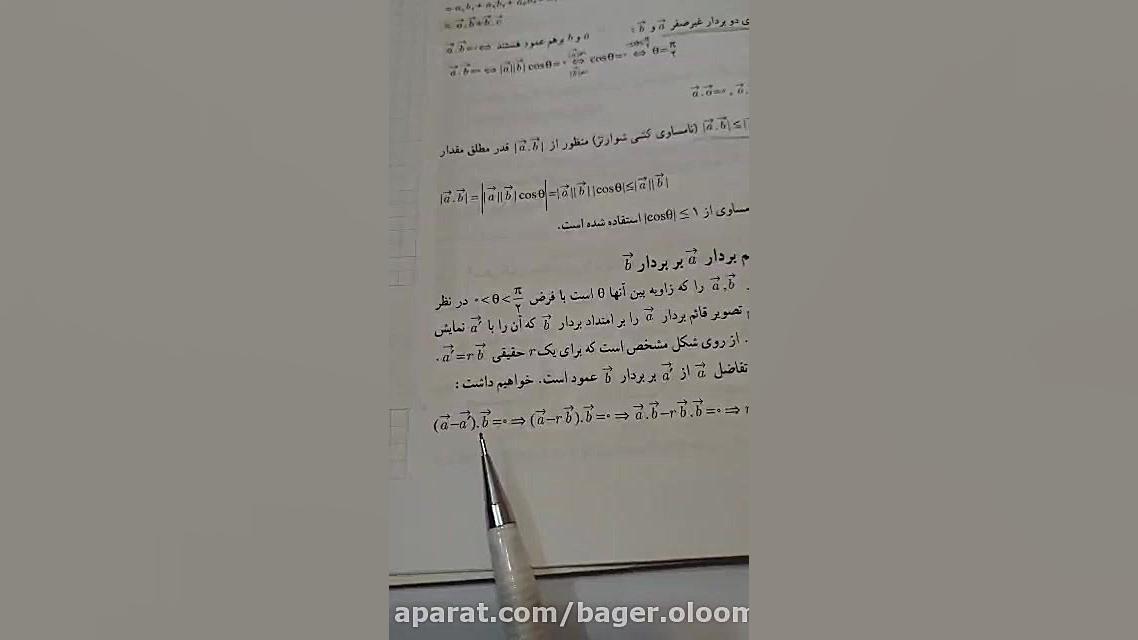 = a⃗.b⃗+b⃗.c⃗
ی دو بردار غیرصفر a⃗ و b⃗ :
a⃗.b⃗=۰ ⇔ a و b برهم عمود هستند
a⃗.b⃗=۰ ⇔ |a⃗||b⃗| cosθ=۰ ⇔ cosθ=۰ ⇔ θ=π/۲
a⃗.a⃗=۰ , a⃗.
|a⃗.b⃗| ≤ (نامساوی کشی شوارتز) منظور از |a⃗.b⃗| قدر مطلق مقدار
|a⃗.b⃗| = ||a⃗||b⃗| cosθ| = |a⃗||b⃗||cosθ| ≤ |a⃗||b⃗|
مساوی از |cosθ| ≤ ۱ استفاده شده است.
م بردار a⃗ بر بردار b⃗
. a⃗,b⃗ را که زاویه بین آنها θ است با فرض ۰<θ<π/۲ در نظر
تصویر قائم بردار a⃗ را بر امتداد بردار b⃗ که آن را با a⃗′ نمایش
. از روی شکل مشخص است که برای یک r حقیقی a⃗′=r b⃗ .
تفاضل a⃗ از a⃗′ بر بردار b⃗ عمود است. خواهیم داشت :
(a⃗−a⃗′).b⃗=۰ ⇒ (a⃗−r b⃗).b⃗=۰ ⇒ a⃗.b⃗−r b⃗.b⃗=۰ ⇒ r
aparat.com/bager.oloom